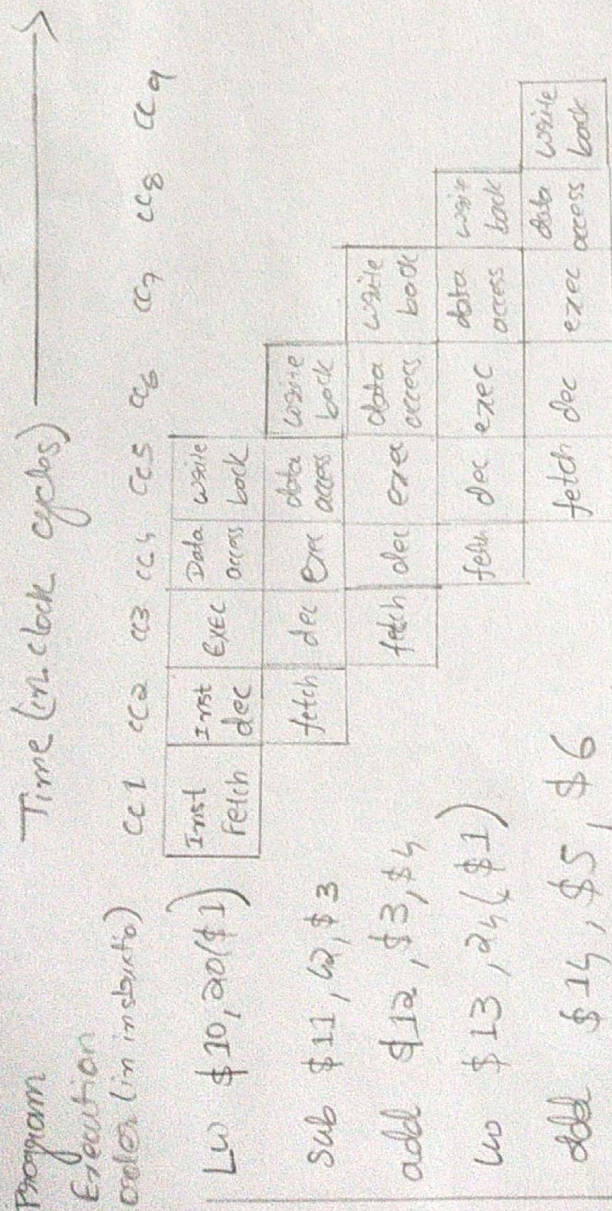 Program
Execution
order (in instructio)
Time (in clock cycles)
CC1 CC2 CC3 CC4 CC5 CC6 CC7 CC8 CC9
Lw $10, 20($1)
Inst Fetch Inst dec Exec Data access write back
Sub $11, $2, $3
fetch dec exec data access write back
add $12, $3, $4
fetch dec exec data access write back
Lw $13, 24($1)
fetch dec exec data access write back
add $14, $5, $6
fetch dec exec data access write back